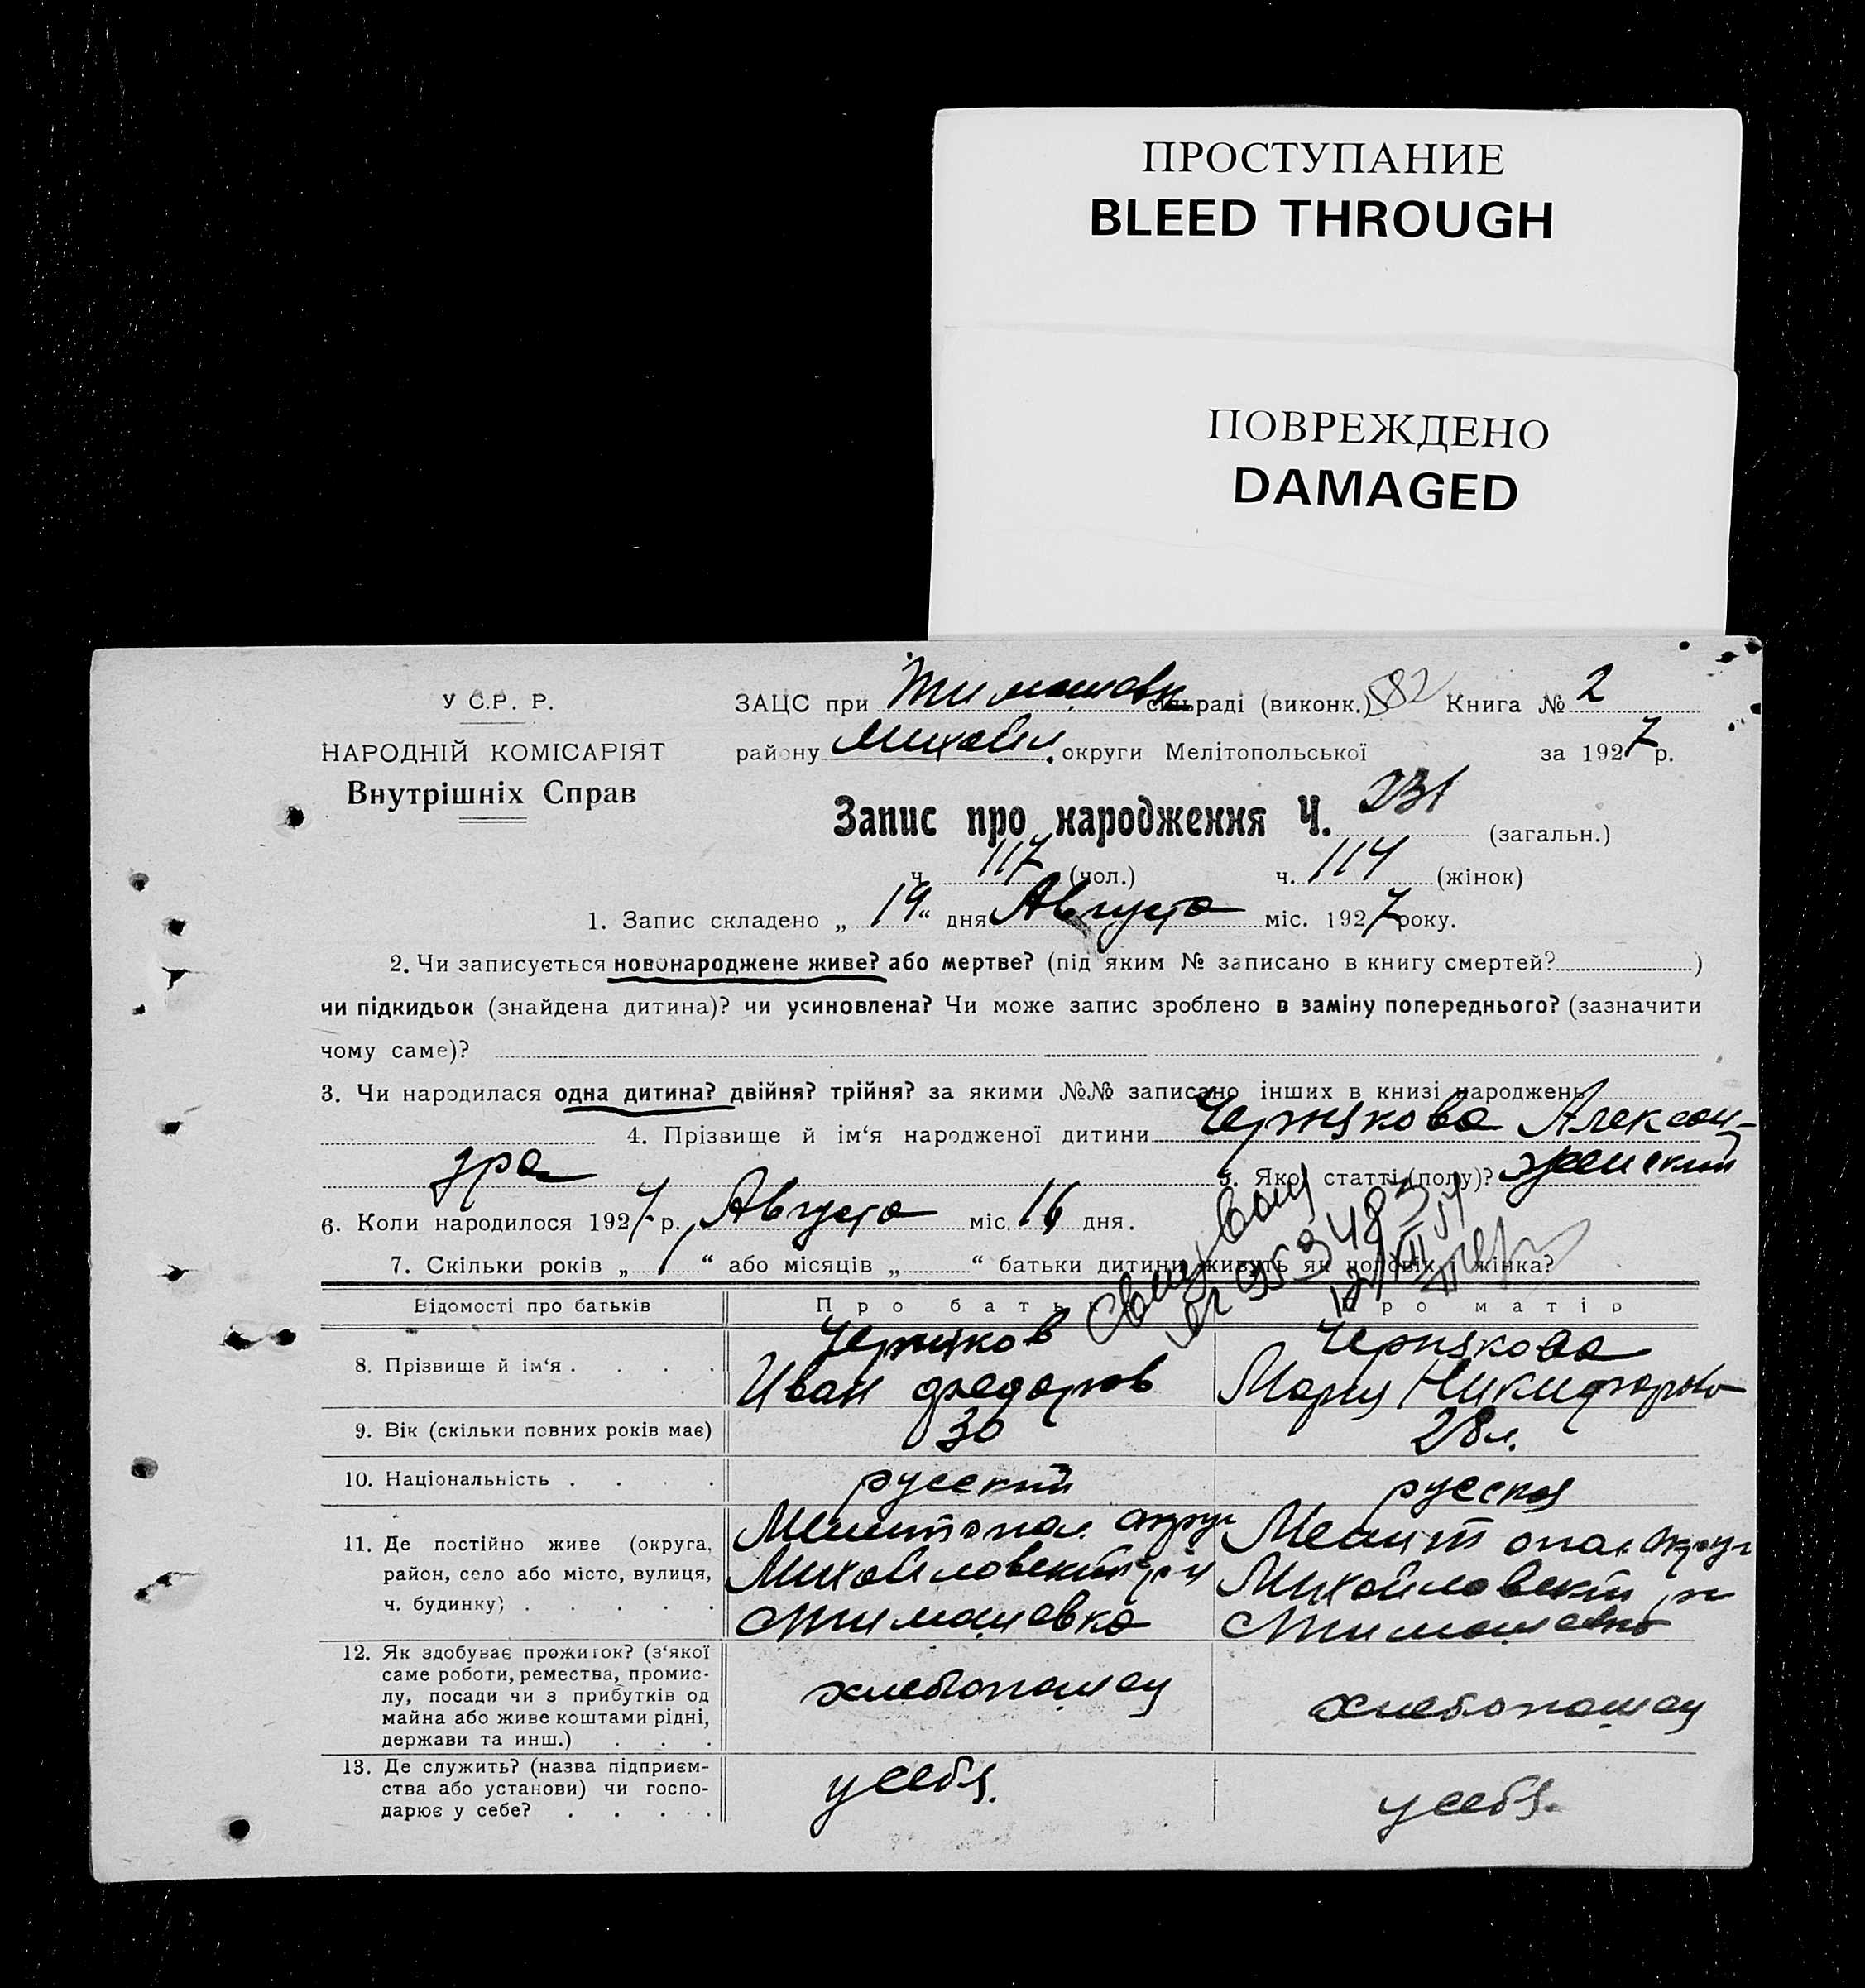 ПРОСТУПАНИЕ
BLEED THROUGH
ПОВРЕЖДЕНО
DAMAGED
У С.Р. Р.
НАРОДНІЙ КОМІСАРІЯТ
Внутрішніх Справ
ЗАЦС при Тимашовк сільраді (виконк.) 582 Книга № 2
району Михайл. округи Мелітопольської за 1927 р.
Запис про народження Ч. 231 (загальн.)
ч. 117 (чол.) ч. 114 (жінок)
1. Запис складено „ 19 “ дня Августа міс. 1927 року.
2. Чи записується новонароджене живе? або мертве? (під яким № записано в книгу смертей? )
чи підкидьок (знайдена дитина)? чи усиновлена? Чи може запис зроблено в заміну попереднього? (зазначити
чому саме)?
3. Чи народилася одна дитина? двійня? трійня? за якими №№ записано інших в книзі народжень
4. Прізвище й ім‘я народженої дитини Чернякова Алексан-
дра 5. Якої статті (полу)? женский
6. Коли народилося 1927 р. Августа міс. 16 дня.
7. Скільки років „ 1 “ або місяців „ “ батьки дитини живуть як чоловік і жінка?
Відомості про батьків Про батька Про матір
8. Прізвище й ім‘я . . . . Черняков Чернякова
Иван Федоров Мария Никифоровн
9. Вік (скільки повних років має) 30 28 л.
10. Національність . . . . русский русская
11. Де постійно живе (округа, Мелитопол. округ Мелитопол округ
район, село або місто, вулиця, Михайловский р-н Михайловский р-н
ч. будинку) . . . . . Тимашовка Тимашовка
12. Як здобуває прожиток? (з‘якої
саме роботи, ремества, промис-
лу, посади чи з прибутків од хлебопашец хлебопашец
майна або живе коштами рідні,
держави та инш.) . . .
13. Де служить? (назва підприєм-
ства або установи) чи госпо- у себя. у себя.
дарює у себе? . . . . .